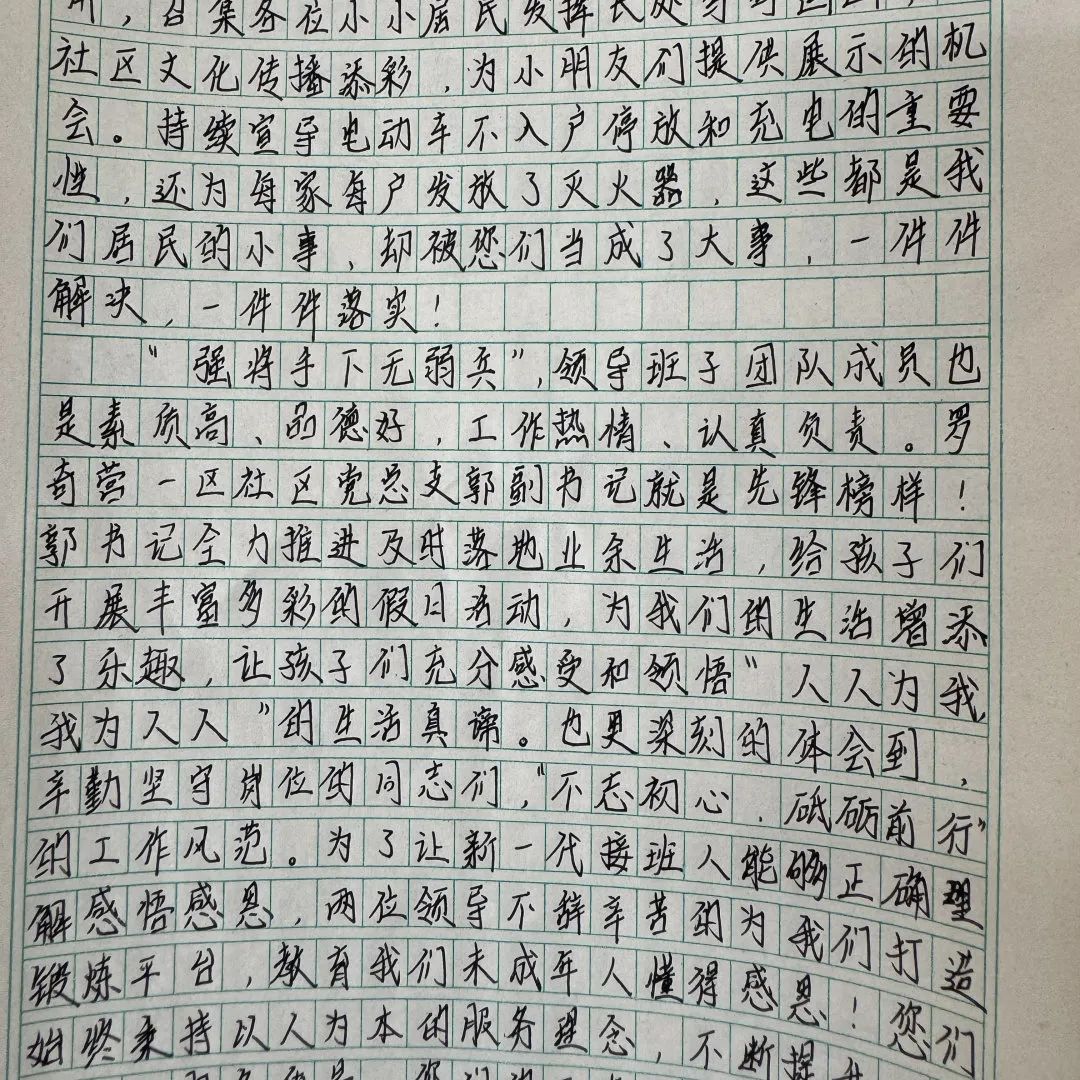 召集各位小小居民发挥长处
社区文化传播添彩，为小朋友们提供展示的机
会。持续宣导电动车不入户停放和充电的重要
性，还为每家每户发放了灭火器，这些都是我
们居民的小事，却被您们当成了大事，一件件
解决，一件件落实！
“强将手下无弱兵”，领导班子团队成员也
是素质高、品德好，工作热情、认真负责。罗
奇营一区社区党总支郭副书记就是先锋榜样！
郭书记全力推进及时落地业余生活，给孩子们
开展丰富多彩的假日活动，为我们的生活增添
了乐趣，让孩子们充分感受和领悟“人人为我，
我为人人”的生活真谛。也更深刻的体会到，
辛勤坚守岗位的同志们，“不忘初心，砥砺前行”
的工作风范。为了让新一代接班人能够正确理
解感悟感恩，两位领导不辞辛苦的为我们打造
锻炼平台，教育我们未成年人懂得感恩！您们
始终秉持以人为本的服务理念，不断提升
您们